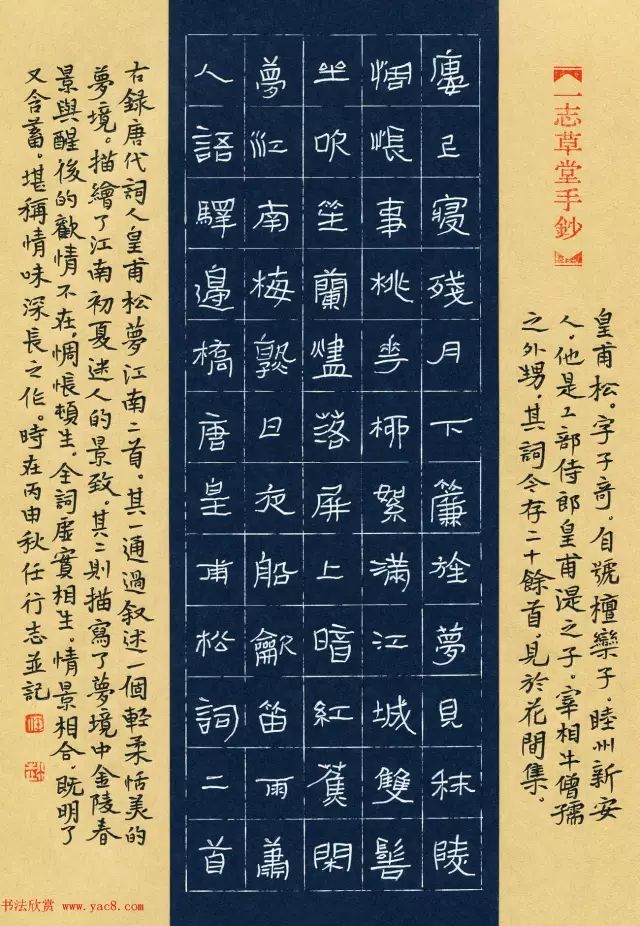 【一志草堂手鈔】
皇甫松。字子奇。自號檀欒子，睦州新安
人，他是工部侍郎皇甫湜之子。宰相牛僧孺
之外甥，其詞今存二十餘首，見於花間集。
廔上寢殘月下簾旌夢見秣陵
惆悵事桃花柳絮滿江城雙髻
坐吹笙蘭燼落屏上暗紅蕉閑
夢江南梅熟日夜船龡笛雨蕭
人語驛邊橋唐皇甫松詞二首
右錄唐代詞人皇甫松夢江南二首。其一通過叙述一個輕柔恬美的
夢境。描繪了江南初夏迷人的景致，其二則描寫了夢境中金陵春
景與醒後的歡情不在，惆悵頓生。全詞虛實相生。情景相合，既明了
又含蓄。堪稱情味深長之作。時在丙申秋任行志並記
书法欣赏 www.yac8.com